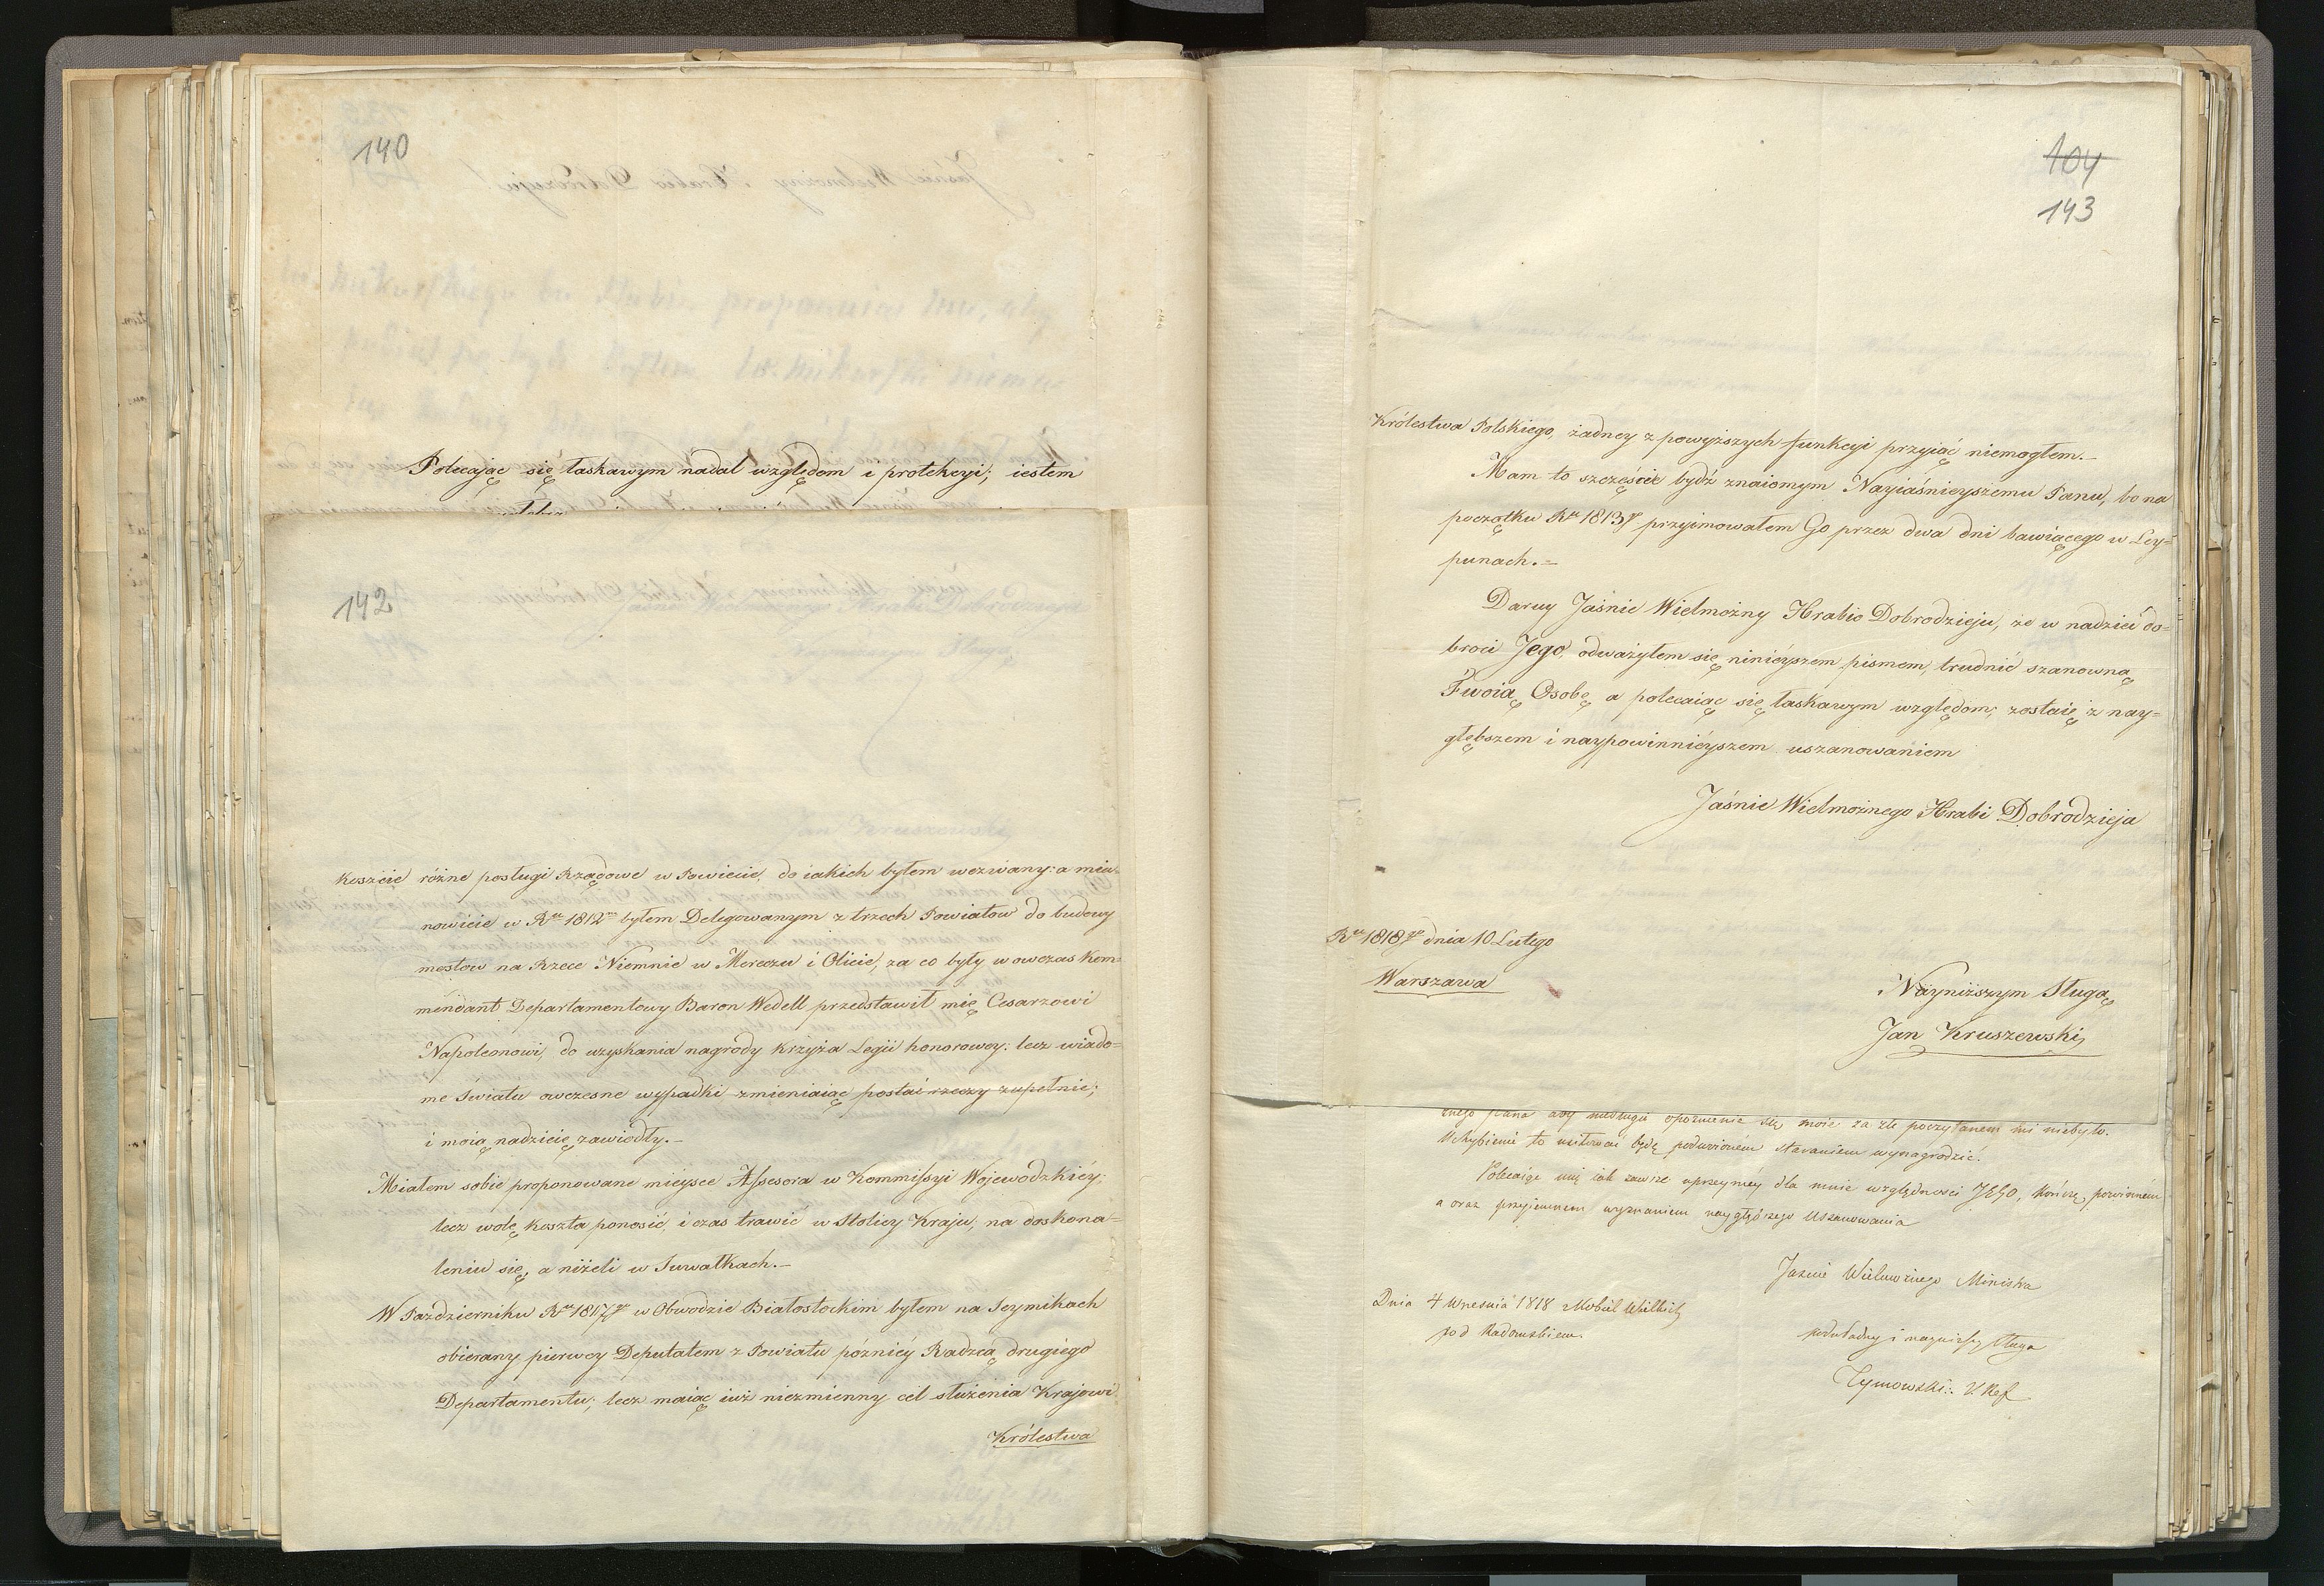 140
Polecając się łaskawym nadal względom i protekcyi; iestem
142
Koszcie różne posługi Rządowe w Powiecie, do iakich byłem wezwany: a mia-
nowicie w Rku 1812m byłem Delegowanym z trzech Powiatow do budowy
mostow na Rzece Niemnie w Mereczu i Olicie, za co były wowczas Kom-
mendant Departamentowy Baron Wedell przedstawił mię Cesarzowi
Napoleonowi, do uzyskania nagrody Krzyża Legii honorowey: lecz wiado=
me Światu owczesne wypadki zmieniaiąc postać rzeczy zupełnie;
i moią nadzieię zawiodły.-
Miałem sobie proponowane mieysce Assesora w Kommissyi Wojewodzkiéy;
lecz wolę koszta ponosić, i czas trawić w Stolicy Kraju, na doskona=
leniu się, a niżeli w Suwałkach.-
W Październiku Rku 1817go w Obwodzie Białostockim byłem na Seymikach
obierany, pierwey Deputatem z Powiatu póżniéy Radzcą drugiégo
Departamentu; lecz maiąc iuż niezmienny cel służenia Krajowi
Królestwa
104
143
Królestwa Polskiego, żadney z powyższych funkcyi przyiąć niemogłem.-
Mam to szczęście bydź znaiomym Nayiáśnieyszemu Panu, bo na
początku Rku 1813go przyimowałem Go przez dwa dni bawiącego w Ley=
punach.=
Daruy Jaśnie Wielmożny Hrabio Dobrodzieju, że w nadziei do=
broci Jego, odważyłem się niniéyszem pismem, trudnić szanowną
Twoią Osobę, a polecaiąc się łaskawym względom; zostaię z nay=
głębszem i naypowinniéyszem uszanowaniem
Jaśnie Wielmożnego Hrabi Dobrodzieja
Rku 1818go dnia 10 Lutego
Warszawa
Nayniższym Sługą
Jan Kruszewski
Pana aby niedługie opoźnienie się moie za złe poczytanem mi niebyło.
Uchybienie to usiłować będę podwoioném staraniem wynagrodzić.
Polecaiąc mię iak zawsze uprzeyméy dla mnie względności JEgo, kończę, powinném
a oraz przyiemnem wyznaniem naygłębszego Uszanowania
Jaśnie Wielmożnego Ministra
Dnia 4 Września 1818 Kobiel Wielkich
pod Radomskiem.
podwładny i nayniższy Sługa
Tymowski: Ref